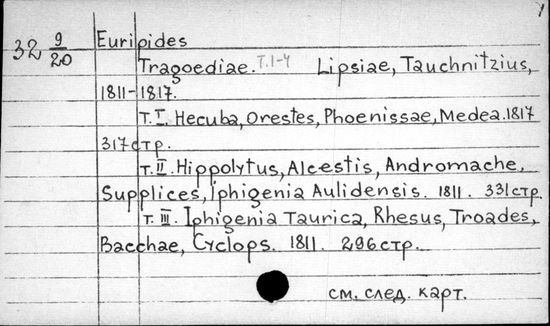 32 9/20 Euripides
Tragoediae. Т.1-4 Lipsiae, Tauchnitzius,
1811-1817.
Т.I. Hecuba, Orestes, Phoenissae, Medea. 1817
317 стр.
Т.II. Hippolytus, Alcestis, Andromache,
Supplices, Iphigenia Aulidensis. 1811. 331 стр.
Т.III. Iphigenia Taurica, Rhesus, Troades,
Bacchae, Cyclops. 1811. 296 стр.
см. след. карт.